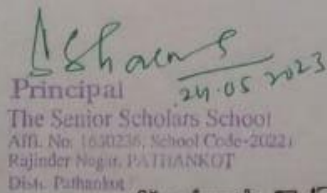 Sharma
24.05.2023
Principal
The Senior Scholars School
Affi. No. 1630236, School Code-20221
Rajinder Nagar, PATHANKOT
Distt. Pathankot